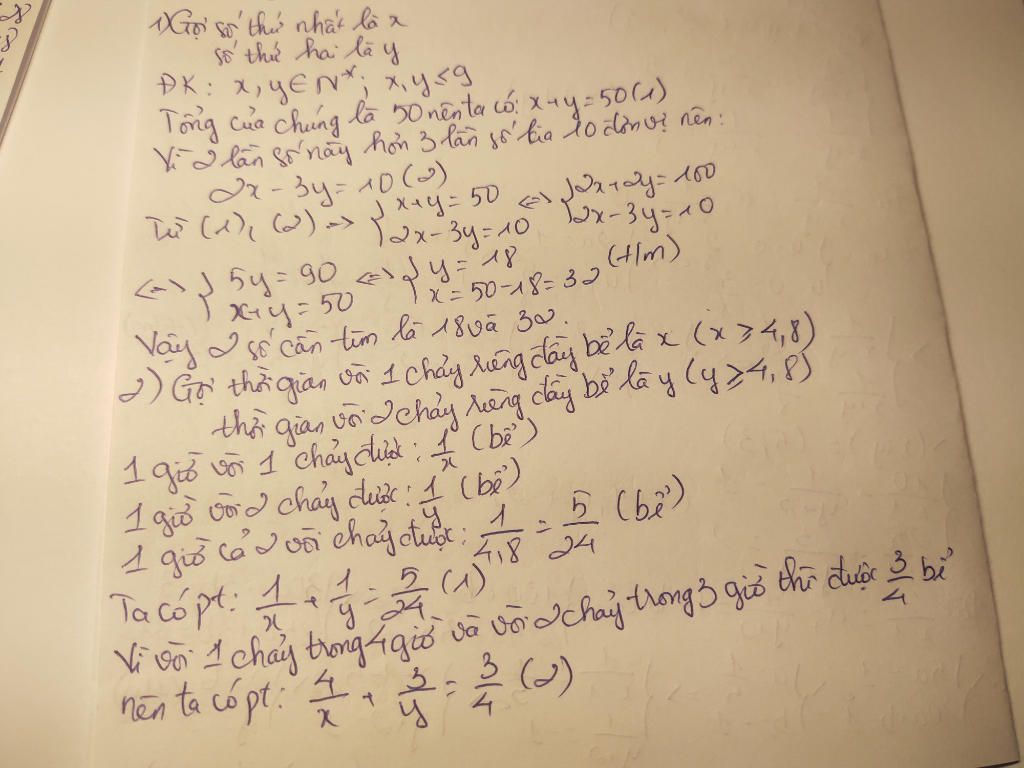 1) Gọi số thứ nhất là x
số thứ hai là y
ĐK: x, y ∈ N*; x, y ≤ 9
Tổng của chúng là 50 nên ta có: x+y = 50 (1)
Vì 2 lần số này hơn 3 lần số kia 10 đơn vị nên:
2x - 3y = 10 (2)
Từ (1), (2) => { x+y = 50 <=> { 2x+2y = 100
2x - 3y = 10 2x - 3y = 10
<=> { 5y = 90 <=> { y = 18 (t/m)
x+y = 50 x = 50-18 = 32
Vậy 2 số cần tìm là 18 và 32.
2) Gọi thời gian vòi 1 chảy riêng đầy bể là x (x ≥ 4,8)
thời gian vòi 2 chảy riêng đầy bể là y (y ≥ 4,8)
1 giờ vòi 1 chảy được: 1/x (bể)
1 giờ vòi 2 chảy được: 1/y (bể)
1 giờ cả 2 vòi chảy được: 1/4,8 = 5/24 (bể)
Ta có pt: 1/x + 1/y = 5/24 (1)
Vì vòi 1 chảy trong 4 giờ và vòi 2 chảy trong 3 giờ thì được 3/4 bể
nên ta có pt: 4/x + 3/y = 3/4 (2)